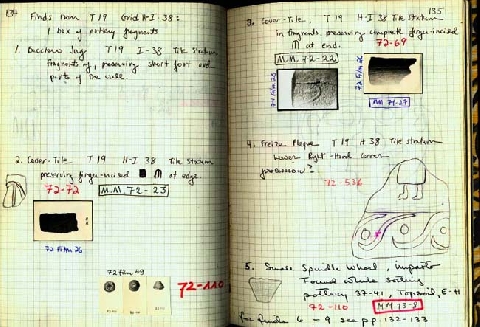 134
Finds from T19 Grid H-I 38:
1 box of pottery fragments
1. Bucchero Jug T19 I-38 Tile Stratum
fragments, preserving short foot and
parts of the wall
2. Cover-Tile T19 H-I 38 Tile Stratum
preserving finger-incised M at edge.
72-72
M.M. 72-23
72 Film 26
72 Film 49
72-110
135
3. Cover-Tile T19 H-I 38 Tile Stratum
in fragments, preserving complete finger-incised
M at end.
72-69
M.M. 72-22
72 Film 26
4. Frieze Plaque T19 H 38 Tile stratum
Lower Right-Hand Corner
procession?
5. Small Spindle Whorl, impasto
Found while sorting
pottery 37-41, Topsoil,
72-110
see pp. 132-133